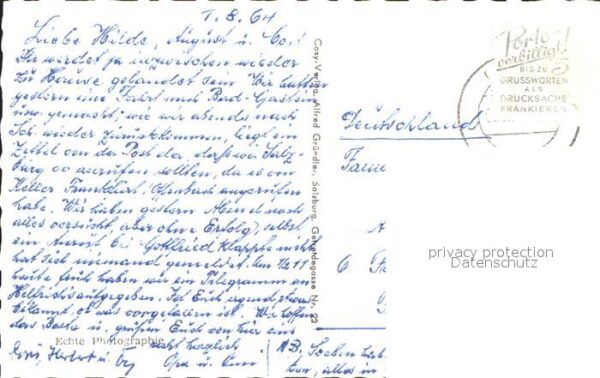 1.8.64
Liebe Hilde, August u. Co.!
Ihr werdet ja inzwischen wieder
zu Hause gelandet sein. Wir hatten
gestern eine Fahrt nach Bad-Gastein
usw. gemacht; wie wir abends nach
wieder zurückkommen, liegt ein
Zettel von der Post da, daß wir Salz-
burg 00 anrufen sollten, da es von
Keller Frankfurt, Offenbach angerufen
habe. Wir haben gestern Abend noch
alles versucht, aber ohne Erfolg, selbst
ein Anruf bei Gottfried Klapp
hat sich niemand gemeldet. Um 1/2 11
heute früh haben wir ein Telegramm an
aufgegeben. Ist Euch irgend etwas
bekannt, ob was vorgefallen ist. Wir hoffen
das Beste u. grüßen Euch von hier aus
recht herzlich
Herbert u.
Opa u.
Echte Photographie
Cosy-Verlag, Alfred Gründler, Salzburg, Getreidegasse Nr. 22
Porto
verbilligt!
BIS ZU 5
GRUSSWORTEN
ALS
DRUCKSACHE
FRANKIEREN
Deutschland
Fami
A
6 F
N.B. Soeben
alles in
privacy protection
Datenschutz